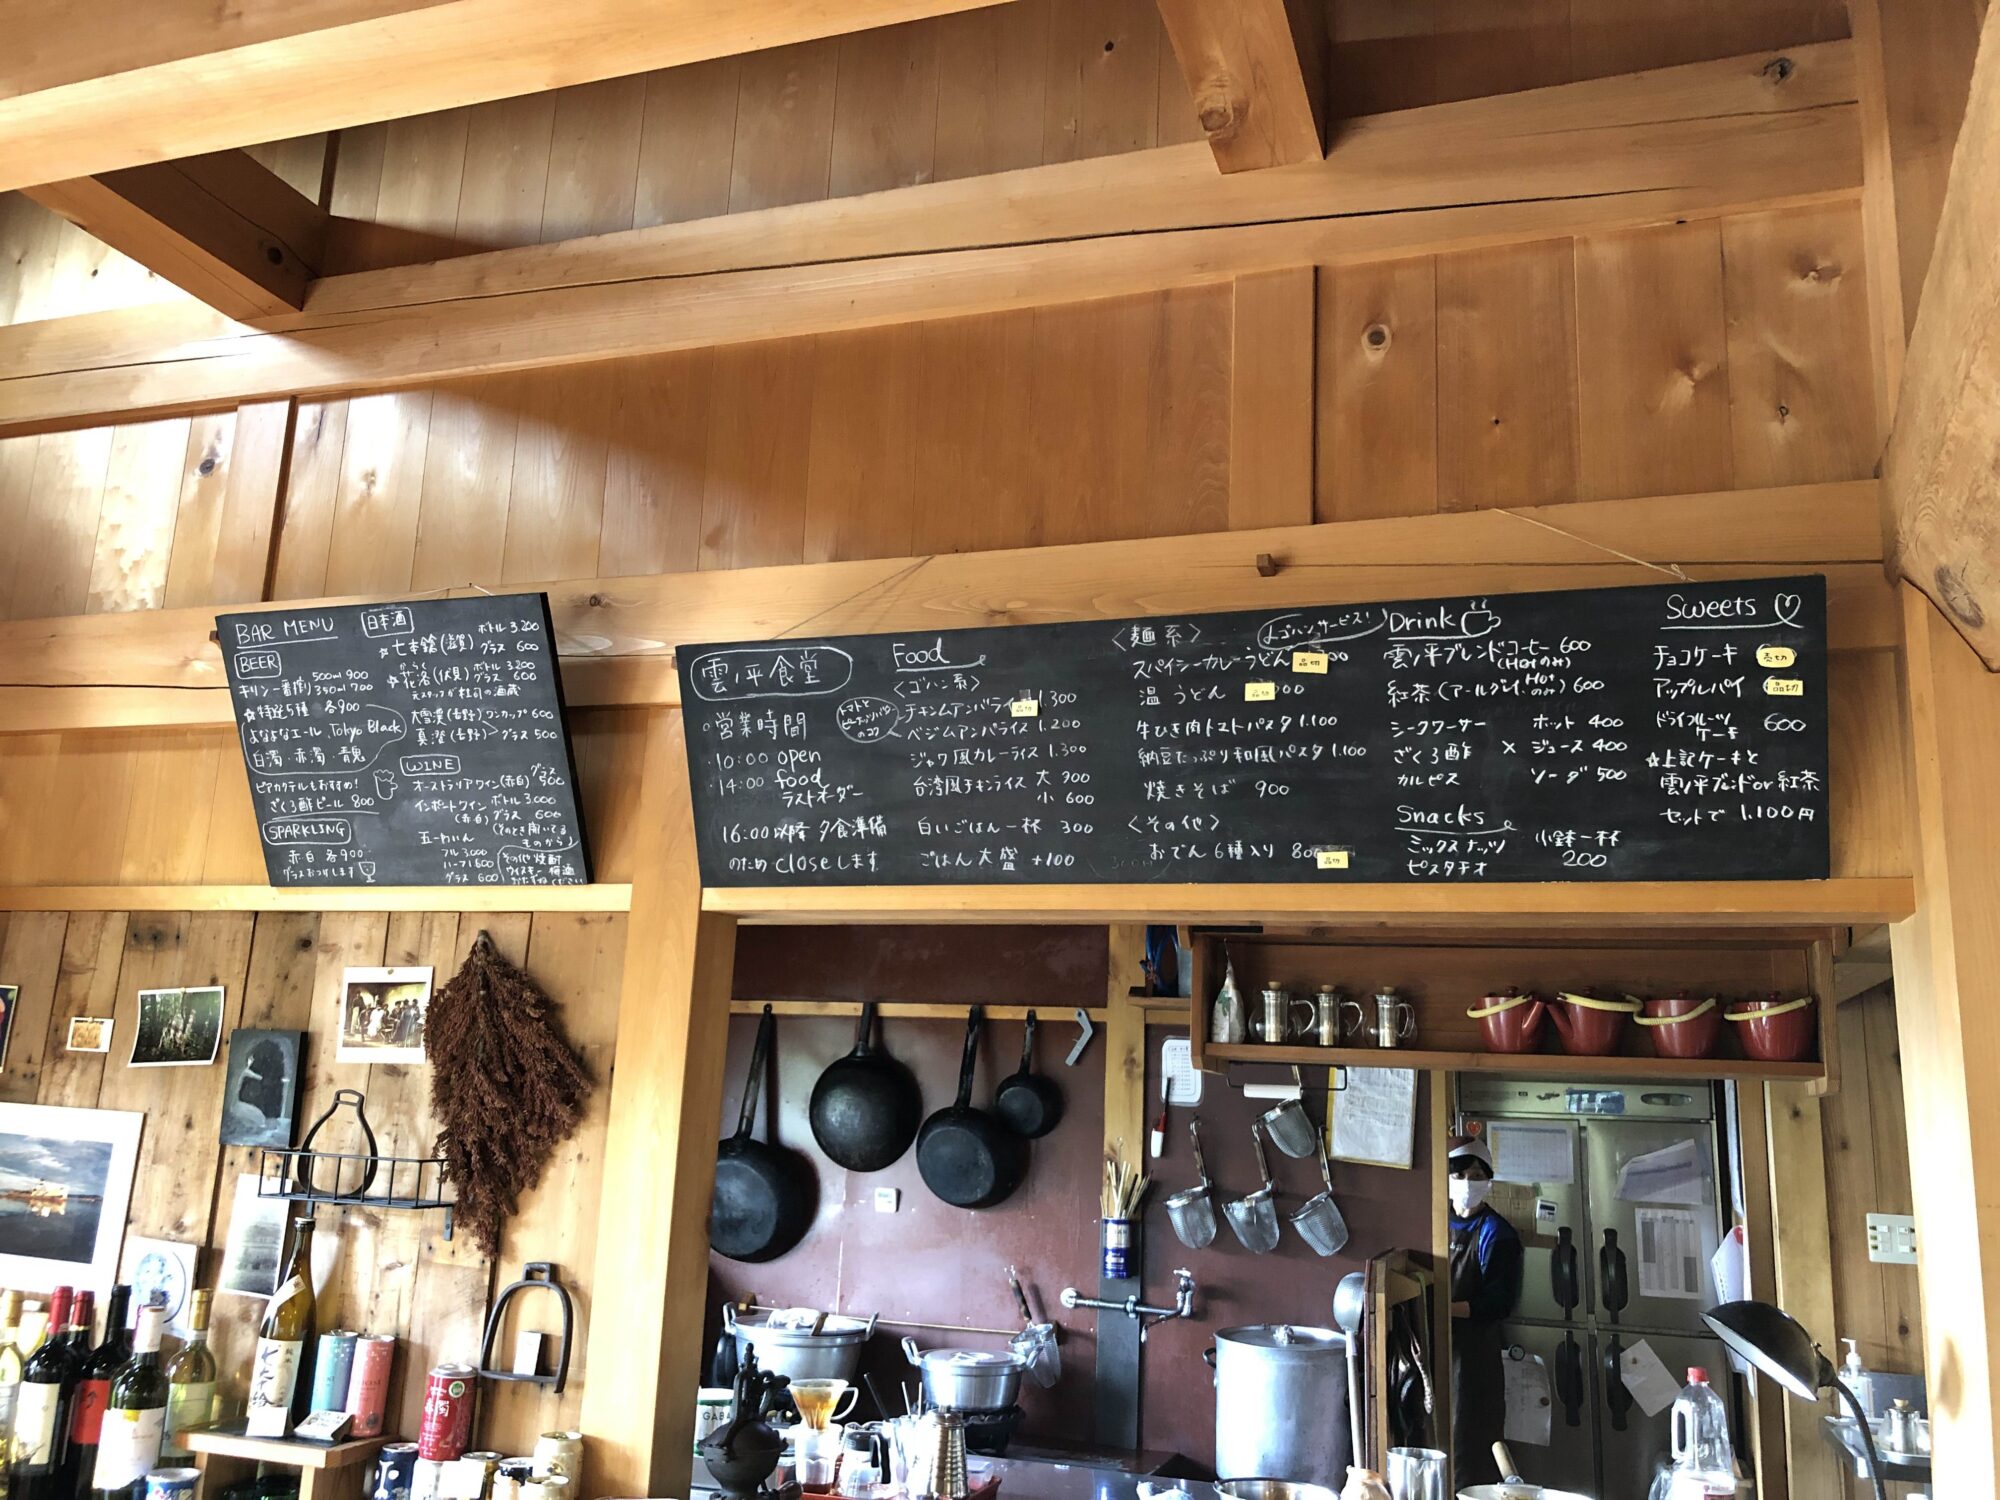 BAR MENU
BEER
キリン一番搾り 500ml 900
350ml 700
☆特選5種 各900
よなよなエール、Tokyo Black
白濁・赤濁・青鬼
ビアカクテルもおすすめ!
ざくろ酢ビール 800
SPARKLING
赤白 各900
グラスおつけします
日本酒
☆七本鎗(滋賀) ボトル 3.200
グラス 600
☆花洛(伏見) ボトル 3.200
グラス 600
元スタッフが杜司の酒蔵
大雪渓(長野)ワンカップ 600
真澄(長野)>グラス 500
WINE
オーストラリアワイン(赤白) グラス 500
インポートワイン ボトル 3.000
(赤白) グラス 600
(そのとき開いてるものから)
五一わいん
フル 3.000
ハーフ 1.600
グラス 600
その他 焼酎
ウイスキー 梅酒
おたずねください
雲ノ平食堂
○営業時間
・10:00 open
・14:00 food
ラストオーダー
16:00以降 夕食準備
のため closeします
Food
<ゴハン系>
トマトと
ピーナッツバター
のコク
チキンムアンバライス 1.300
品切
ベジムアンバライス 1.200
ジャワ風カレーライス 1.300
台湾風チキンライス 大 900
小 600
白いごはん一杯 300
ごはん大盛 +100
<麺系>
小ゴハンサービス!
スパイシーカレーうどん 品切 00
温うどん 品切 00
牛ひき肉トマトパスタ 1.100
納豆たっぷり和風パスタ 1.100
焼きそば 900
<その他>
おでん6種入り 80 品切
Drink
雲ノ平ブレンドコーヒー 600
(HOTのみ)
紅茶(アールグレイ・HOTのみ) 600
シークワーサー ホット 400
ざくろ酢 × ジュース 400
カルピス ソーダ 500
Snacks
ミックスナッツ 小鉢一杯
ピスタチオ 200
Sweets
チョコケーキ 売切
アップルパイ 品切
ドライフルーツケーキ 600
☆上記ケーキと
雲ノ平ブレンドor紅茶
セットで 1.100円
七本鎗
GABA